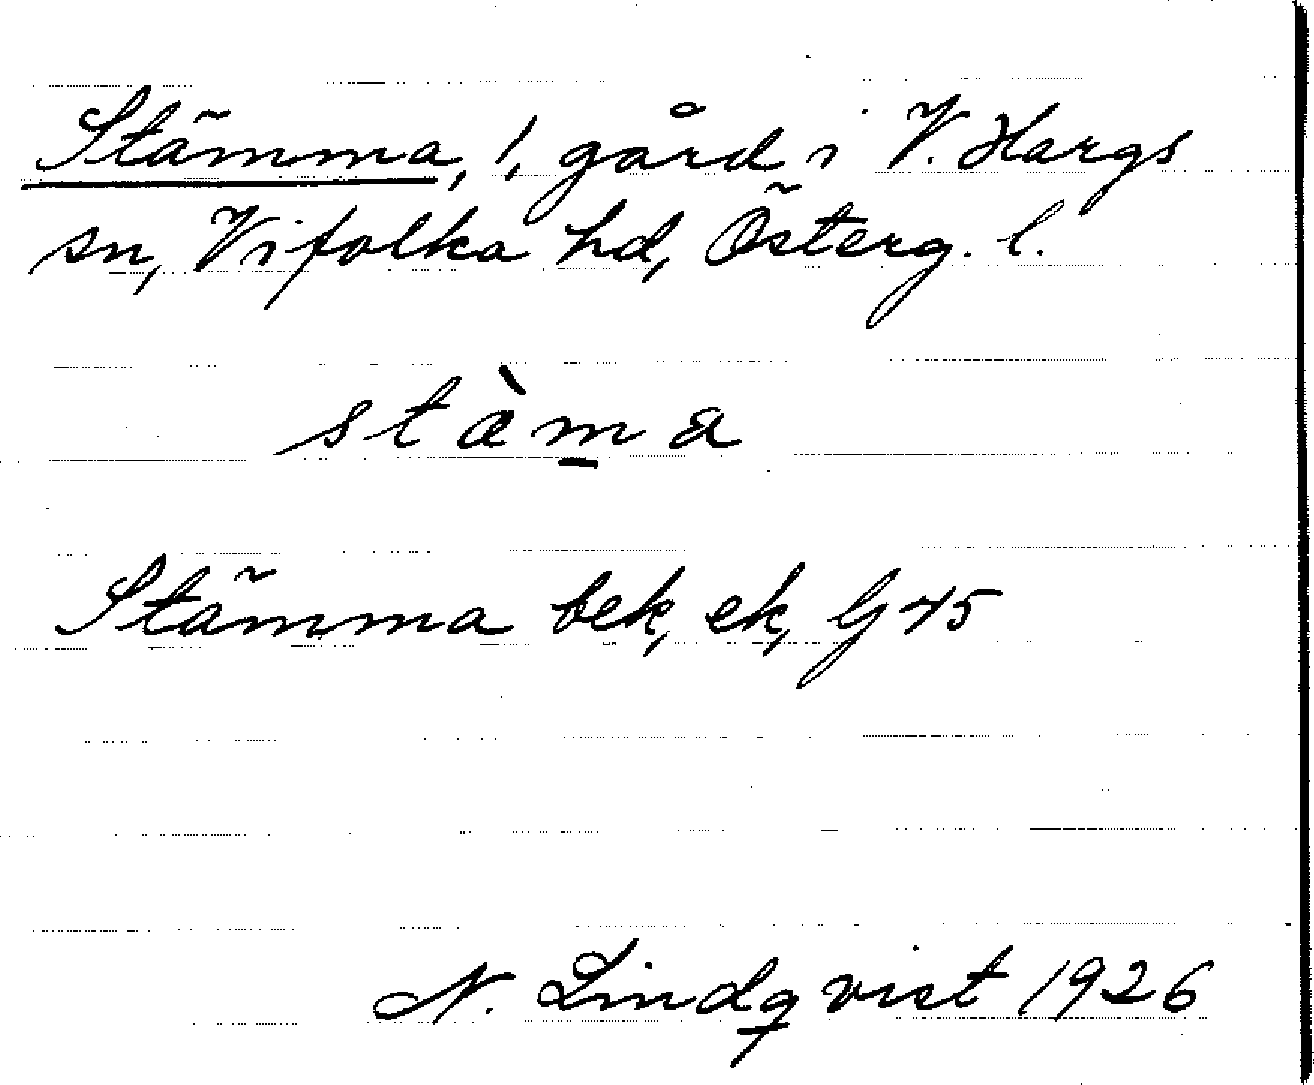 Stämma, 1, gård i V. Hargs
sn, Vifolka hd, Österg. l.
stàm̲a
Stämma bek, ek, Gj 45
N. Lindqvist 1926